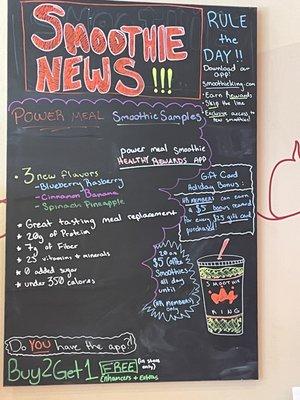 SMOOTHIE
NEWS !!!
RULE
the
DAY!!
Download our
app!
smoothieking.com
-Earn Rewards
-Skip the line
-Exclusive access to
new smoothies!
POWER MEAL Smoothie Samples
power meal Smoothie
HEALTHY REWARDS APP
• 3 new flavors
-Blueberry Raspberry
-Cinnamon Banana
-Spinach Pineapple
* Great tasting meal replacement
* 20g of Protein
* 7g of Fiber
* 23 vitamins + minerals
* 0 added sugar
* under 350 calories
Gift Card
Holiday Bonus:
HR MEMBERS can earn
a $5 bonus reward
for every $25 gift card
purchased!
20oz
$5 Coffee
Smoothies
all day
until
(HR MEMBERS)
only
SMOOTHIE
KING
Do YOU have the app?!
Buy 2 Get 1 FREE (in store only)
Enhancers + Extras